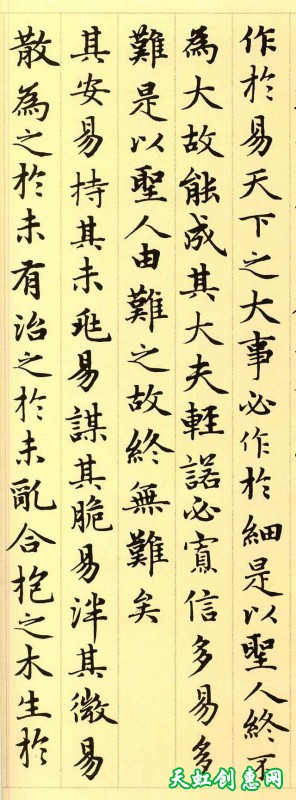 作於易天下之大事必作於細是以聖人終不
為大故能成其大夫輕諾必寡信多易多
難是以聖人由難之故終無難矣
其安易持其未兆易謀其脆易泮其微易
散為之於未有治之於未亂合抱之木生於
天虹创惠网